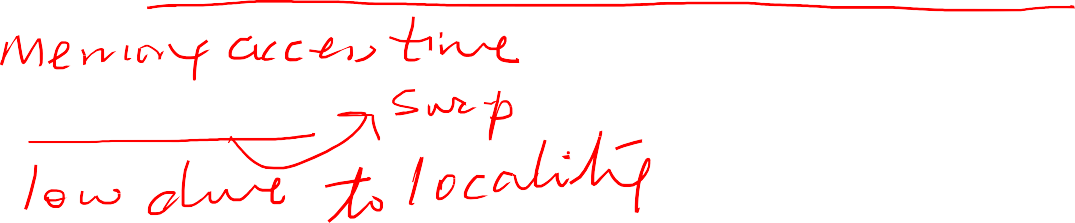 Memory access time
swap
low due to locality